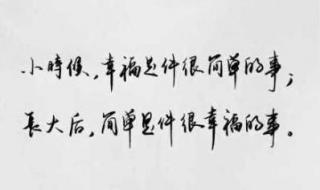 小時候,幸福是件很简单的事;
長大后,简单是件很幸福的事。